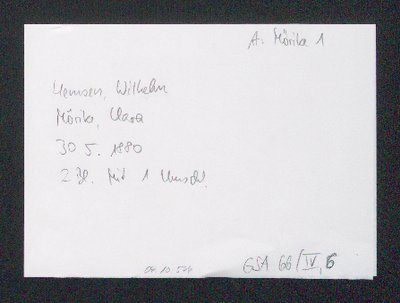 A: Mörike 1
Hemsen, Wilhelm
Mörike, Clara
30 5. 1880
2 Bl. mit 1 Umschl.
GSA 66/IV, 6